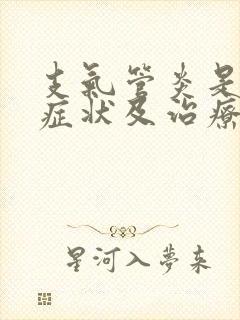 支氣管炎是
症狀及治療
星河入夢来